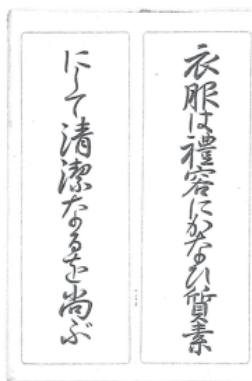 衣服は禮容にかなひ質素
にして清潔なるを尚ぶ